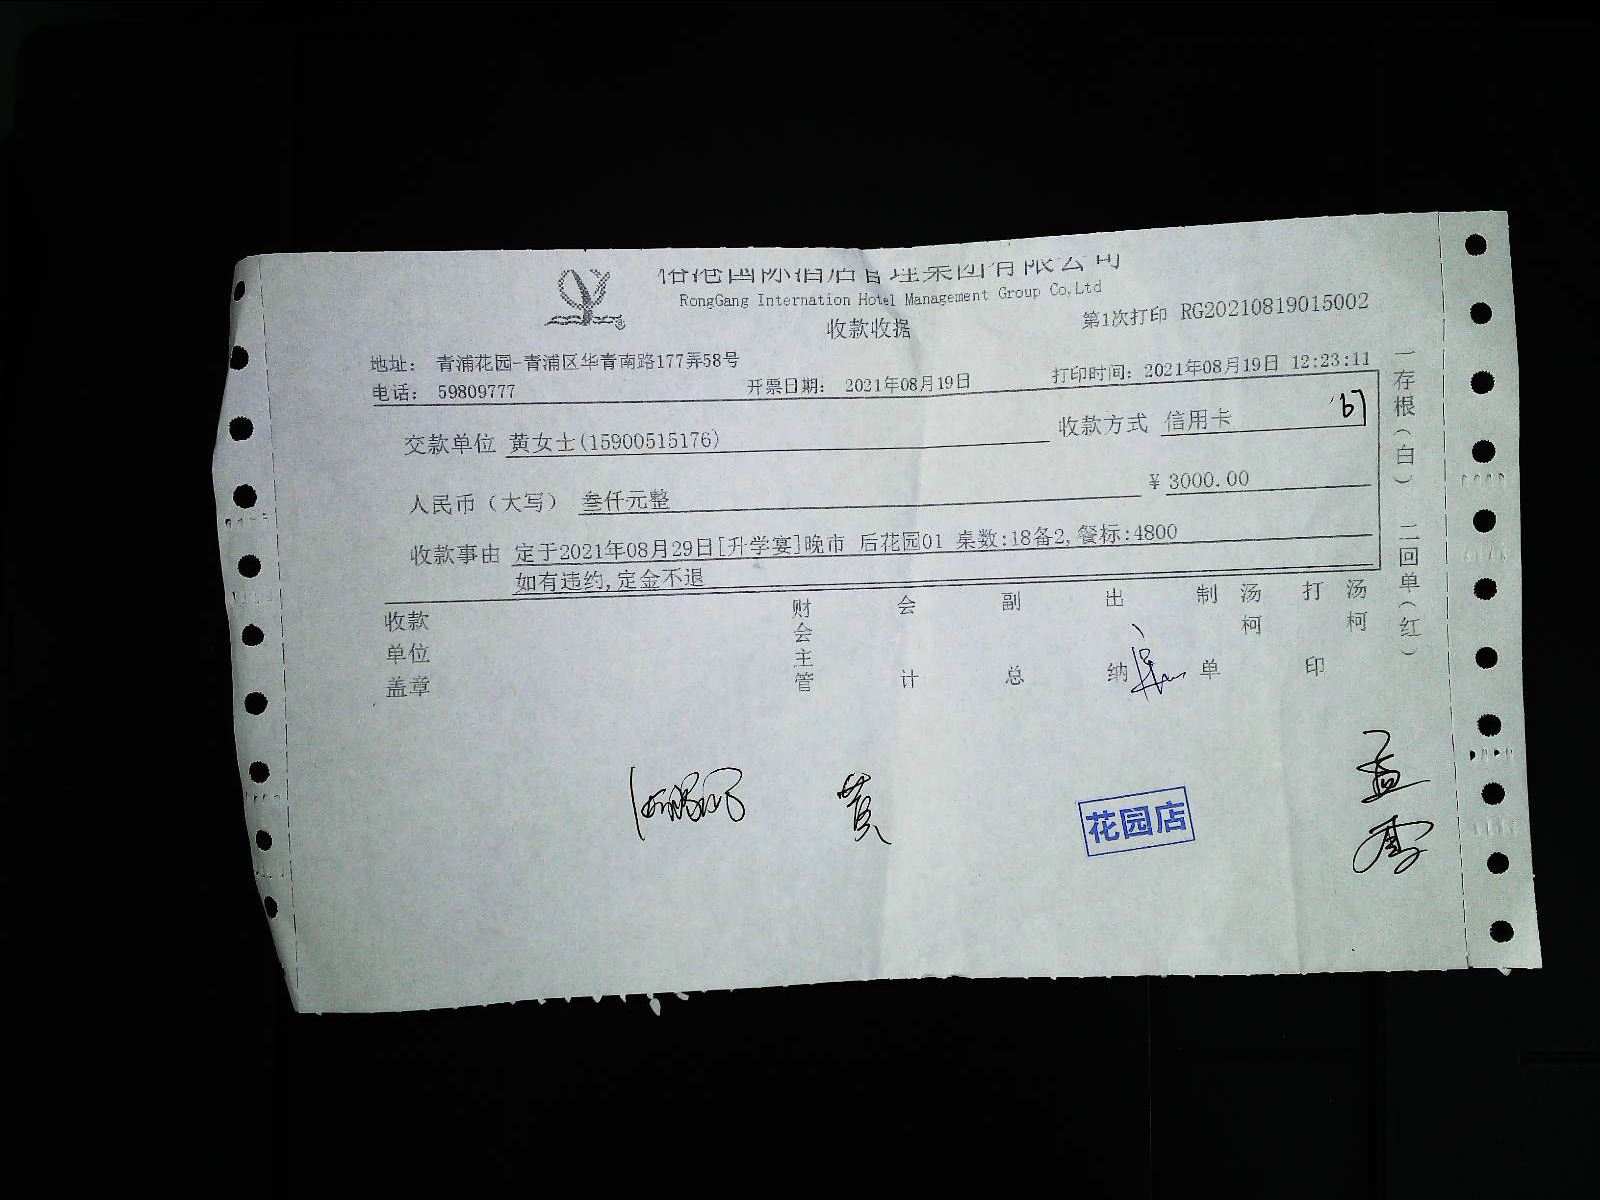 国际酒店管理集团有限公司
RongGang Internation Hotel Management Group Co,Ltd
收款收据
第1次打印 RG20210819015002
地址： 青浦花园-青浦区华青南路177弄58号
电话： 59809777 开票日期： 2021年08月19日 打印时间： 2021年08月19日 12:23:11
交款单位 黄女士(15900515176) 收款方式 信用卡
人民币（大写） 叁仟元整 ￥3000.00
收款事由 定于2021年08月29日[升学宴]晚市 后花园01 桌数:18备2,餐标:4800
如有违约,定金不退
收款单位盖章 财会主管 会计 副总 出纳 制单 汤柯 打印 汤柯
一存根（白） 二回单（红）
黄
花园店
孟